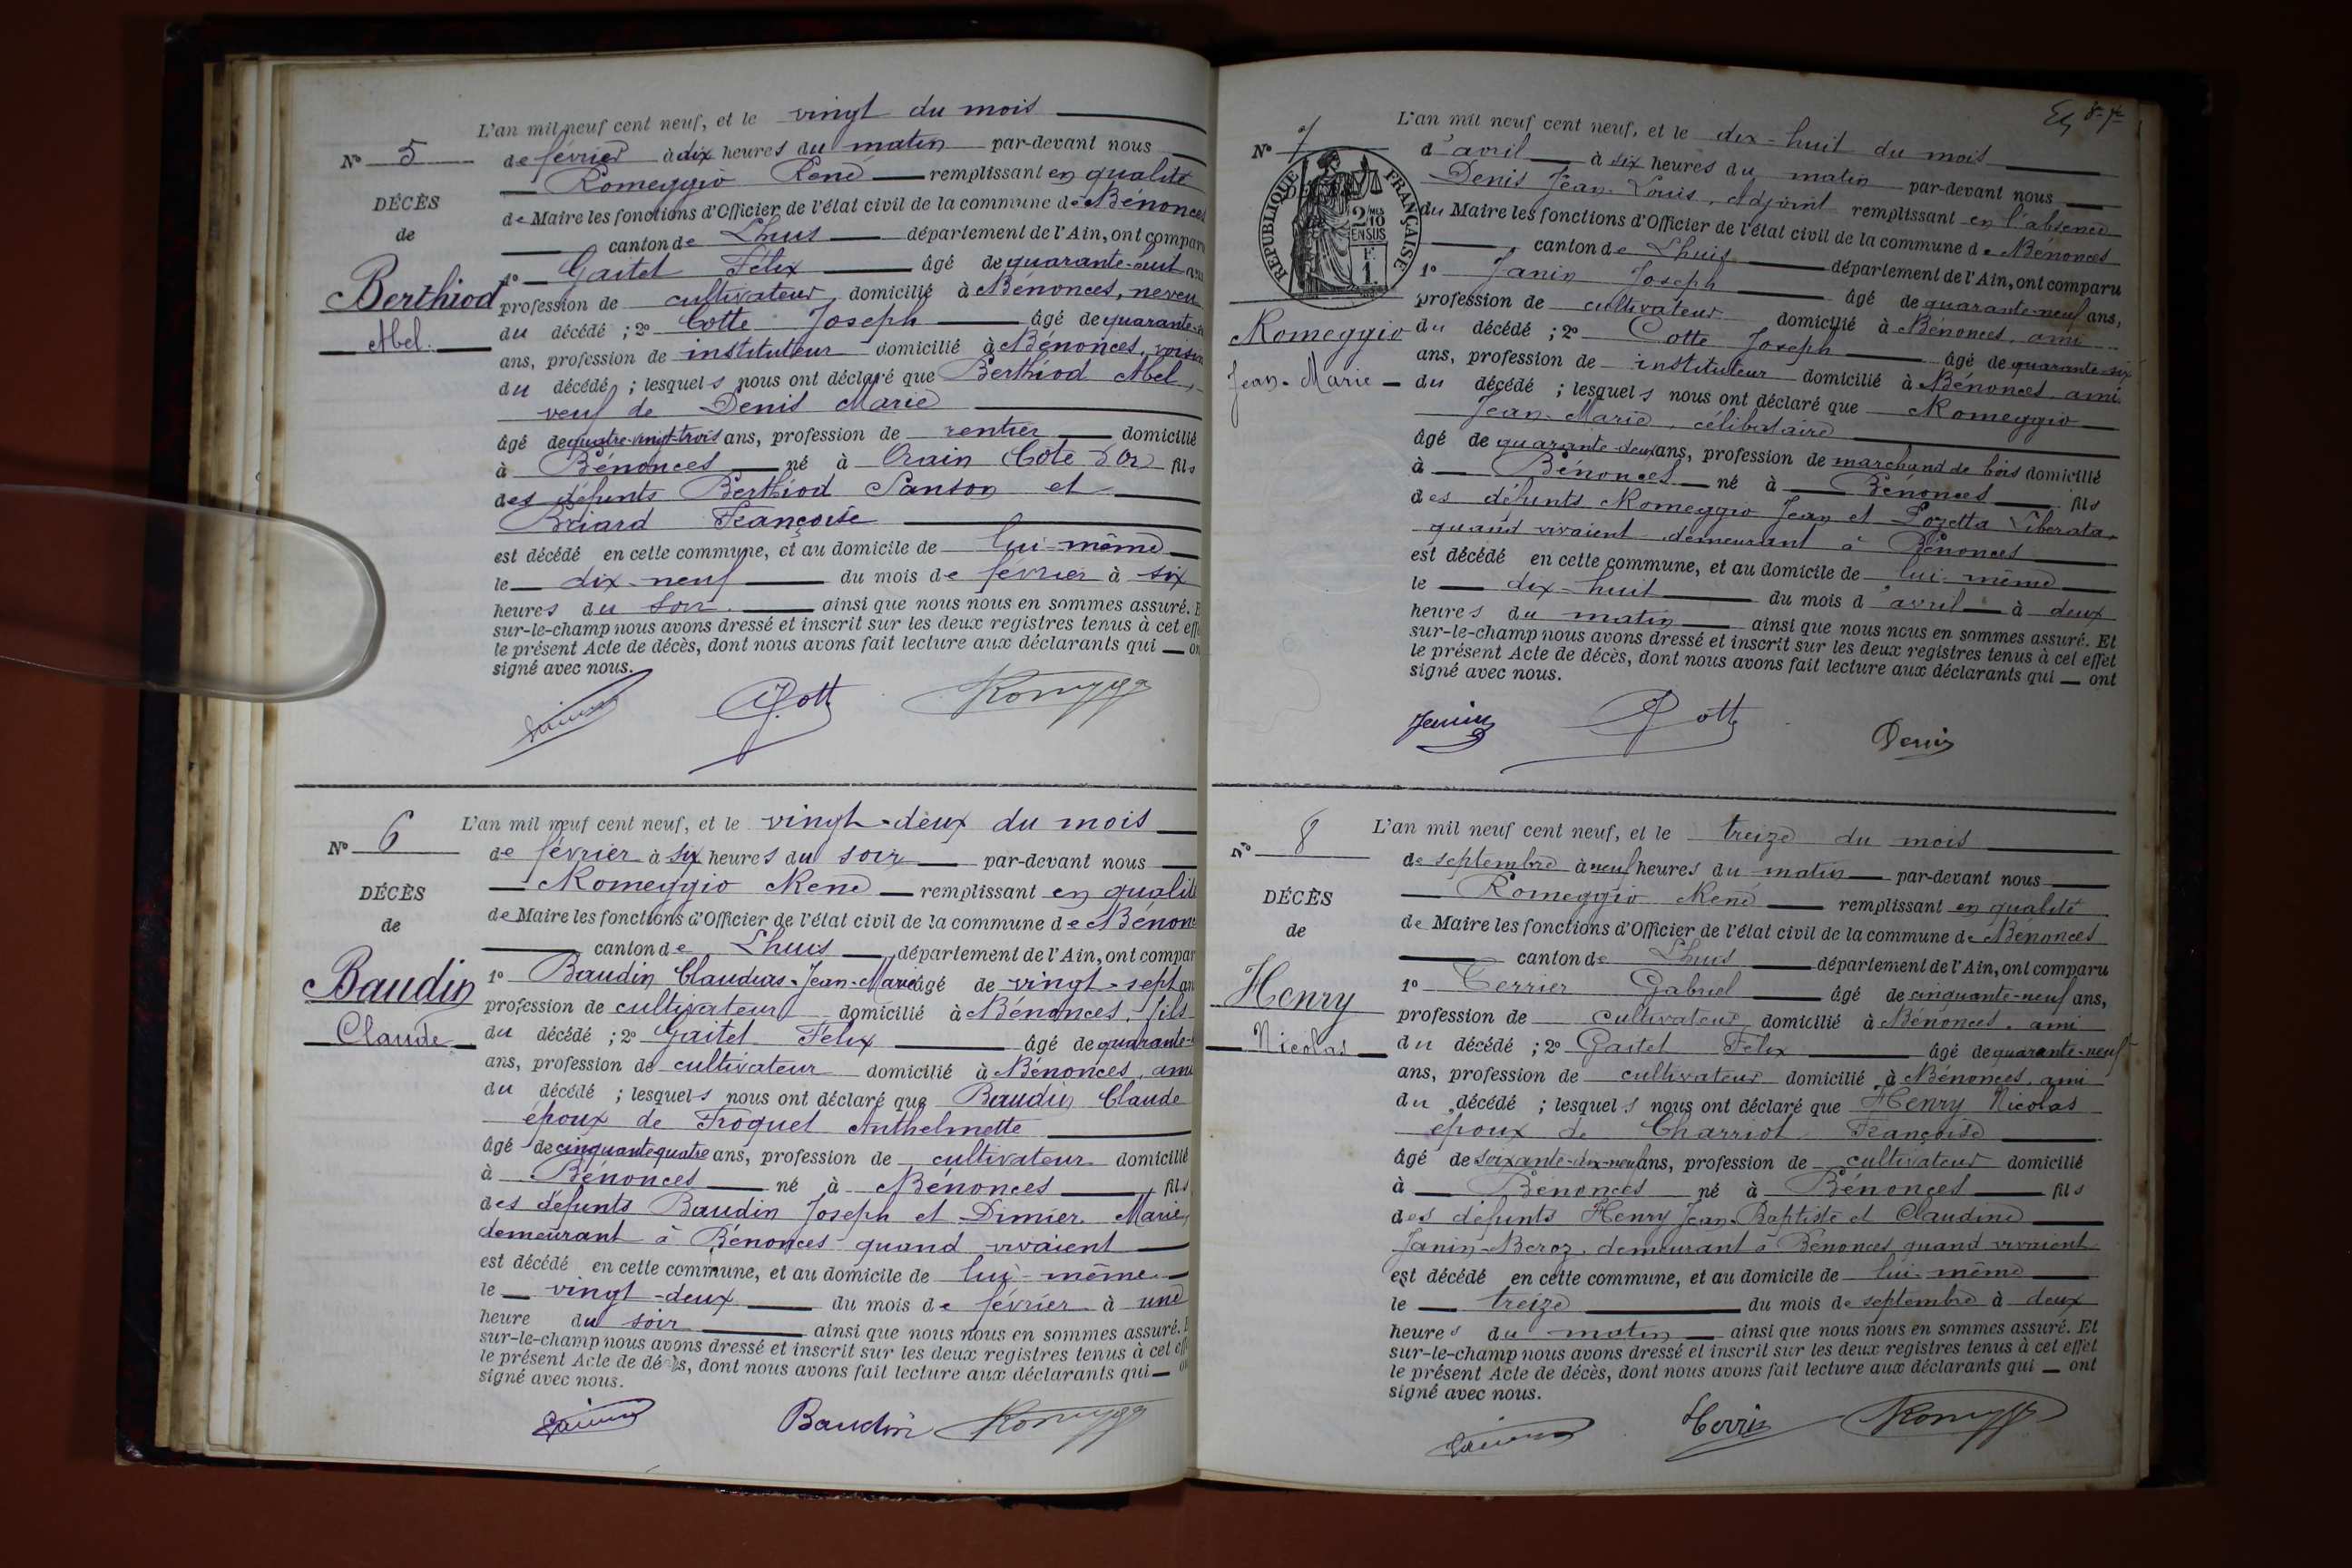 L'an mil neuf cent neuf, et le vingt du mois
N° 5
de février à dix heures du matin par-devant nous
Romeggio René remplissant en qualité
DÉCÈS
de
Berthiod
Abel.
de Maire les fonctions d'Officier de l'état civil de la commune de Bénonces
canton de Lhuis département de l'Ain, ont comparu
1° Gaitet Félix âgé de quarante-huit ans
profession de cultivateur, domicilié à Bénonces, neveu
du décédé ; 2° Cotte Joseph âgé de quarante-
ans, profession de instituteur domicilié à Bénonces, voisin
du décédé ; lesquels nous ont déclaré que Berthiod Abel,
veuf de Denis Marie
âgé de quatre-vingt-trois ans, profession de rentier domicilié
à Bénonces né à Orain Côte d'Or fils
des défunts Berthiod Sanson et
Briard Françoise
est décédé en cette commune, et au domicile de lui-même
le dix-neuf du mois de février à six
heures du soir. ainsi que nous nous en sommes assuré. E
sur-le-champ nous avons dressé et inscrit sur les deux registres tenus à cet effe
le présent Acte de décès, dont nous avons fait lecture aux déclarants qui on
signé avec nous.
J. Cotte
N° 6
L'an mil neuf cent neuf, et le vingt-deux du mois
de février à six heures du soir par-devant nous
Romeggio René remplissant en qualité
DÉCÈS
de
Baudin
Claude
de Maire les fonctions d'Officier de l'état civil de la commune de Bénonc
canton de Lhuis département de l'Ain, ont compar
1° Baudin Claudius-Jean-Marie âgé de vingt-sept an
profession de cultivateur domicilié à Bénonces, fils
du décédé ; 2° Gaitet Félix âgé de quarante-
ans, profession de cultivateur domicilié à Bénonces, ami
du décédé ; lesquels nous ont déclaré que Baudin Claude
époux de Froquet Anthelmette
âgé de cinquante-quatre ans, profession de cultivateur domicilié
à Bénonces né à Bénonces fils
des défunts Baudin Joseph et Dimier Marie,
demeurant à Bénonces quand vivaient
est décédé en cette commune, et au domicile de lui-même
le vingt-deux du mois de février à une
heure du soir ainsi que nous nous en sommes assuré. E
sur-le-champ nous avons dressé et inscrit sur les deux registres tenus à cet effe
le présent Acte de décès, dont nous avons fait lecture aux déclarants qui on
signé avec nous.
Baudin
N° 7
L'an mil neuf cent neuf, et le dix-huit du mois
d'avril à six heures du matin par-devant nous
Denis Jean-Louis, adjoint remplissant en l'absence
RÉPUBLIQUE FRANÇAISE
2/10
EN SUS
F.
1.
Romeggio
Jean-Marie
du Maire les fonctions d'Officier de l'état civil de la commune de Bénonces
canton de Lhuis département de l'Ain, ont comparu
1° Janin Joseph âgé de quarante-neuf ans,
profession de cultivateur domicilié à Bénonces, ami
du décédé ; 2° Cotte Joseph âgé de quarante-six
ans, profession de instituteur domicilié à Bénonces, ami
du décédé ; lesquels nous ont déclaré que Romeggio
Jean-Marie, célibataire
âgé de quarante-deux ans, profession de marchand de bois domicilié
à Bénonces né à Bénonces fils
des défunts Romeggio Jean et Pozetta Liberata,
quand vivaient demeurant à Bénonces
est décédé en cette commune, et au domicile de lui-même
le dix-huit du mois d'avril à deux
heures du matin ainsi que nous nous en sommes assuré. Et
sur-le-champ nous avons dressé et inscrit sur les deux registres tenus à cet effet
le présent Acte de décès, dont nous avons fait lecture aux déclarants qui ont
signé avec nous.
Janin J. Cotte Denis
N° 8
L'an mil neuf cent neuf, et le treize du mois
de septembre à neuf heures du matin par-devant nous
Romeggio René remplissant en qualité
DÉCÈS
de
Henry
Nicolas
de Maire les fonctions d'Officier de l'état civil de la commune de Bénonces
canton de Lhuis département de l'Ain, ont comparu
1° Terrier Gabriel âgé de cinquante-neuf ans,
profession de cultivateur domicilié à Bénonces, ami
du décédé ; 2° Gaitet Félix âgé de quarante-neuf
ans, profession de cultivateur domicilié à Bénonces, ami
du décédé ; lesquels nous ont déclaré que Henry Nicolas
époux de Charriot Françoise
âgé de soixante-dix-neuf ans, profession de cultivateur domicilié
à Bénonces né à Bénonces fils
des défunts Henry Jean-Baptiste et Claudine
Janin-Beroz, demeurant à Bénonces quand vivaient
est décédé en cette commune, et au domicile de lui-même
le treize du mois de septembre à deux
heures du matin ainsi que nous nous en sommes assuré. Et
sur-le-champ nous avons dressé et inscrit sur les deux registres tenus à cet effet
le présent Acte de décès, dont nous avons fait lecture aux déclarants qui ont
signé avec nous.